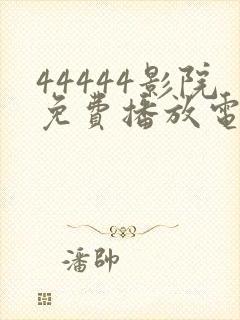 44444影院
免費播放電
潘帥